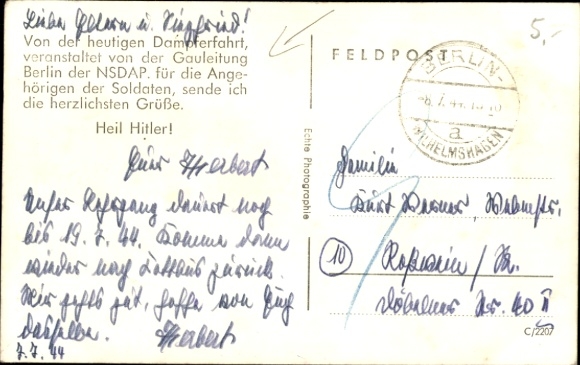 Liebe Eltern u. Siegfried!
Von der heutigen Dampferfahrt,
veranstaltet von der Gauleitung
Berlin der NSDAP. für die Ange-
hörigen der Soldaten, sende ich
die herzlichsten Grüße.
Heil Hitler!
Euer Herbert
Unser Lehrgang dauert noch
bis 19.7.44. Komme dann
wieder nach Cottbus zurück.
Mir gehts gut, hoffe von Euch
dasselbe. Herbert
7.7.44
Echte Photographie
5,-
FELDPOST
BERLIN-
8.7.44
a
WILHELMSHAGEN
Familie
Kurt Werner,
10
Roßwein / Sa.
Döbelner Str. 40 II
C/2207